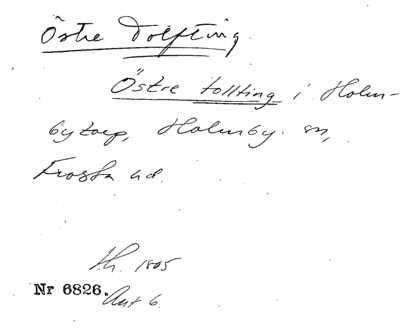 Östre Tolfting
Östre tollting i Holm-
bytorp, Holmby sn,
Frosta hd.
Sh. 1805
Nr 6826. Akt 6.